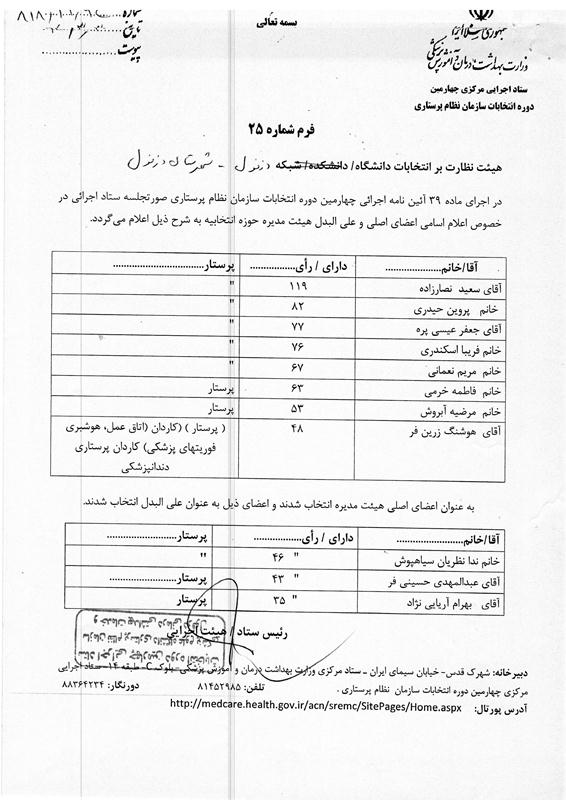 بسمه تعالی
شماره
تاریخ
پیوست
جمهوری اسلامی ایران
وزارت بهداشت، درمان و آموزش پزشکی
ستاد اجرایی مرکزی چهارمین
دوره انتخابات سازمان نظام پرستاری
فرم شماره ۲۵
هیئت نظارت بر انتخابات دانشگاه/ دانشکده/ شبکه دزفول - شهرستان دزفول
در اجرای ماده ۳۹ آئین نامه اجرائی چهارمین دوره انتخابات سازمان نظام پرستاری صورتجلسه ستاد اجرائی در
خصوص اعلام اسامی اعضای اصلی و علی البدل هیئت مدیره حوزه انتخابیه به شرح ذیل اعلام می‌گردد.
آقا/خانم..................... دارای / رأی................. پرستار...................................
آقای سعید نصارزاده ۱۱۹ "
خانم پروین حیدری ۸۲ "
آقای جعفر عیسی پره ۷۷ "
خانم فریبا اسکندری ۷۶ "
خانم مریم نعمانی ۶۷ "
خانم فاطمه خرمی ۶۳ پرستار
خانم مرضیه آبروش ۵۳ پرستار
آقای هوشنگ زرین فر ۴۸ ( پرستار ) (کاردان (اتاق عمل، هوشبری
فوریتهای پزشکی) کاردان پرستاری
دندانپزشکی
به عنوان اعضای اصلی هیئت مدیره انتخاب شدند و اعضای ذیل به عنوان علی البدل انتخاب شدند.
آقا/خانم........................ دارای / رأی................. پرستار.........................
خانم ندا نظریان سیاهپوش " ۴۶ "
آقای عبدالمهدی حسینی فر " ۴۳ پرستار.........................
آقای بهرام آریایی نژاد " ۳۵ پرستار
رئیس ستاد / هیئت اجرایی
دبیرخانه: شهرک قدس- خیابان سیمای ایران ـ ستاد مرکزی وزارت بهداشت درمان و آموزش پزشکی- بلوک C- طبقه ۱۴- ستاد اجرایی
مرکزی چهارمین دوره انتخابات سازمان نظام پرستاری . تلفن: ۸۱۴۵۲۹۸۵ دورنگار: ۸۸۳۶۴۲۳۴
آدرس پورتال: http://medcare.health.gov.ir/acn/sremc/SitePages/Home.aspx